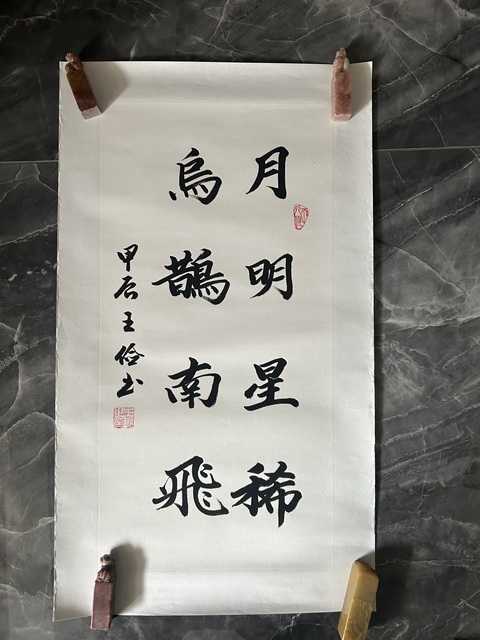 月明星稀
烏鵲南飛
甲辰王俭书